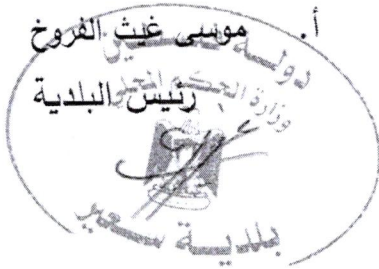 أ. موسى غيث الفروخ
رئيس البلدية
دولة فلسطين
وزارة الحكم المحلي
بلدية سعير